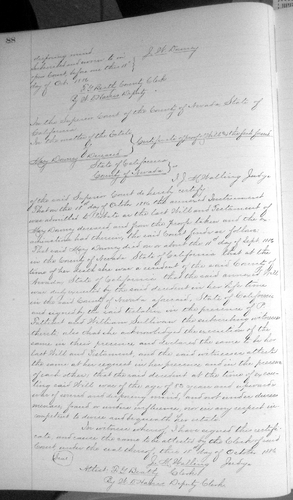 88
disposing mind
Subscribed and sworn to in
open Court before me this
day of Oct. 1886
Clerk
By Deputy
In the Superior Court of the County of Nevada State of
California
In the matter of the Estate
of
Mary Downey Deceased
State of California
County of Nevada
I J. M. Walling Judge
of the said Superior Court do hereby certify
That on the day of October 1886 the annexed Instrument
was admitted to Probate as the last Will and Testament of
Mary Downey deceased and from the proofs taken and the
examination had therein, the said Court finds as follows
That said Mary Downey died on or about the day of Sept 1886
in the County of Nevada State of California that at the
time of her death she was a resident of the said County of
Nevada State of California that the said annexed Will
was duly executed by the said decedent in her life time
in the said County of Nevada aforesaid, State of California
and signed by the said testatrix in the presence of
and William Sullivan the subscribing witnesses
thereto also that she acknowledged the execution of the
same in their presence and declared the same to be her
last Will and Testament, and the said witnesses attested
the same at her request in her presence, and in the presence
of each other that the said decedent at the time of executing
said Will was of the age of years and upwards
was of sound and disposing mind, and not under duress
menace, fraud or undue influence, nor in any respect incompetent
to devise and bequeath her estate
In witness whereof I have signed this certificate
and caused the same to be attested by the Clerk of said
Court under the seal thereof this day of October 1886
J. M. Walling Judge
Attest Clerk
By Deputy Clerk